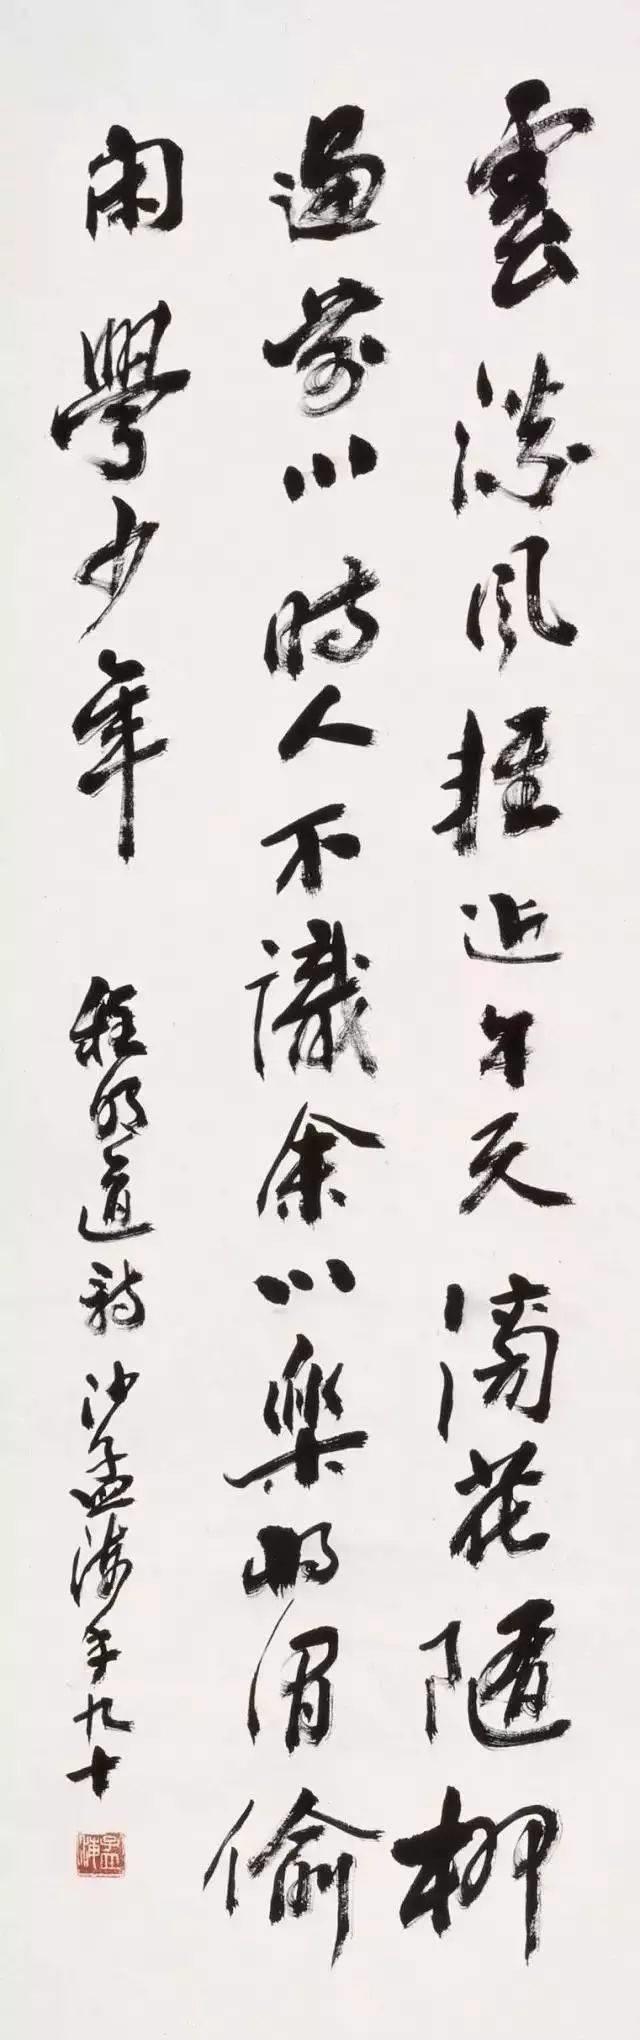 雲淡風輕近午天傍花隨柳
過前川時人不識余心樂將謂偷
閑學少年 程明道詩 沙孟海年九十
孟海